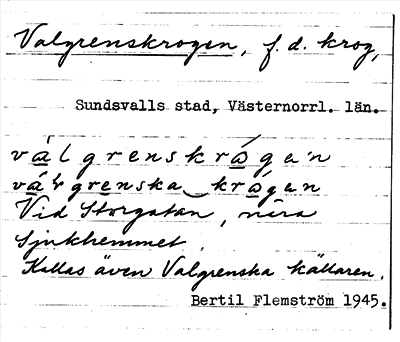 Valgrenskrogen, f. d. krog,
Sundsvalls stad, Västernorrl. län.
välgrenskrågen
välgrenska krågen
Vid Storgatan, nära
Sjukhemmet.
Kallas även Valgrenska källaren.
Bertil Flemström 1945.